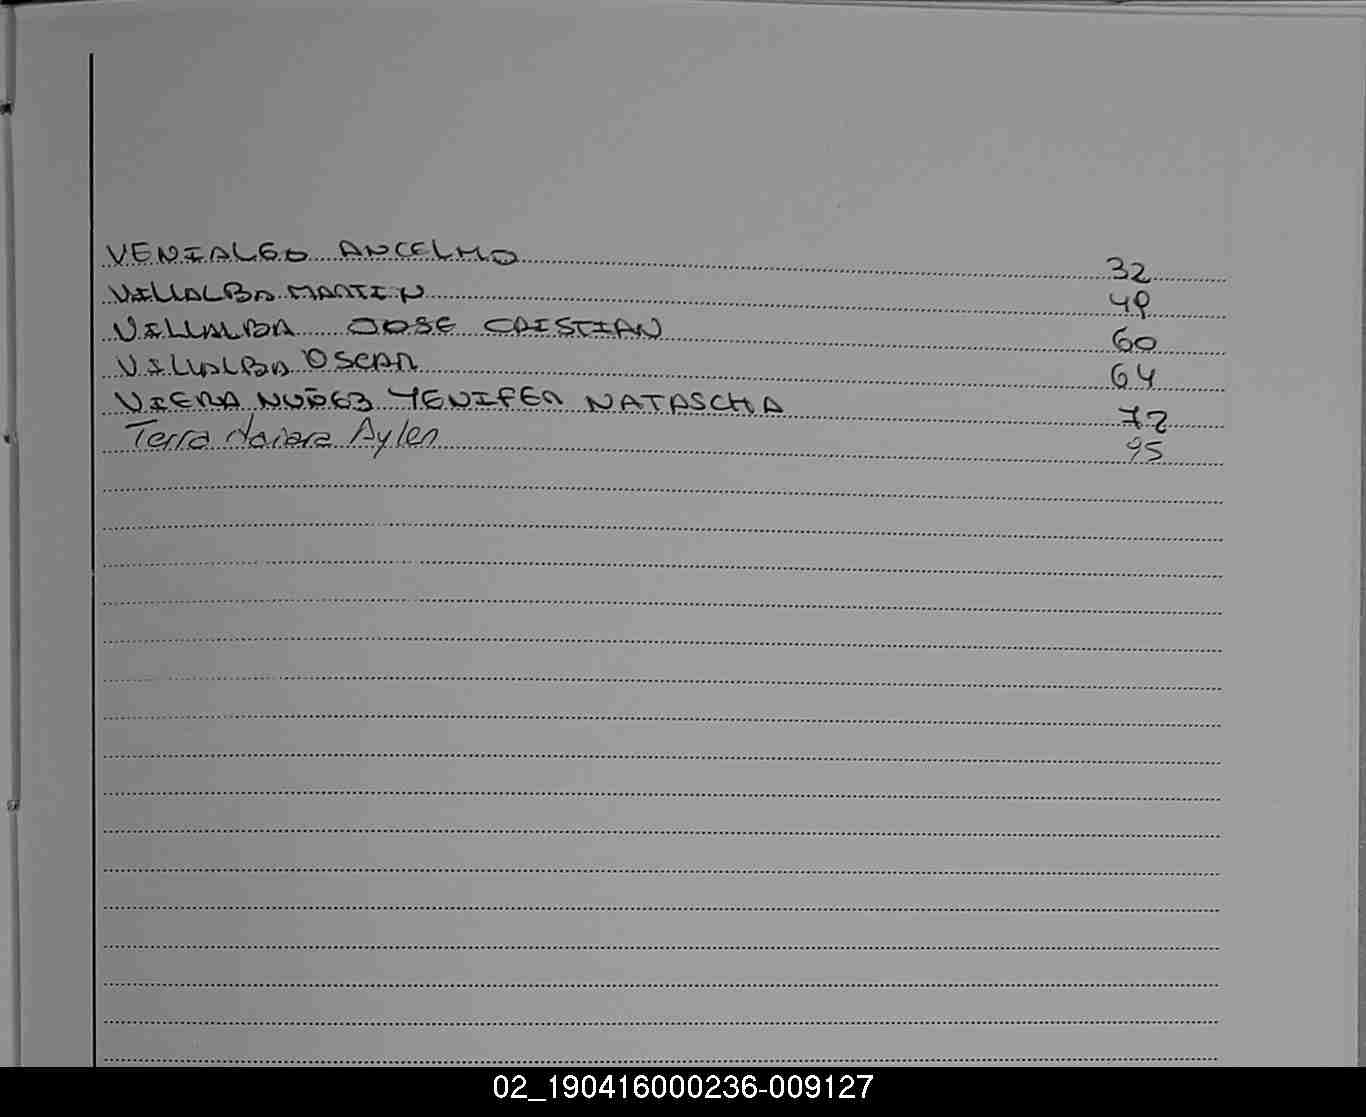 VENIALGO ANCELMO 32
VILLALBA MARTIN 49
VILLALBA JOSE CRISTIAN 60
VILLALBA OSCAR 64
VIERA NUÑEZ YENIFER NATASCHA 72
Terra Naiara Aylen 95
02_190416000236-009127